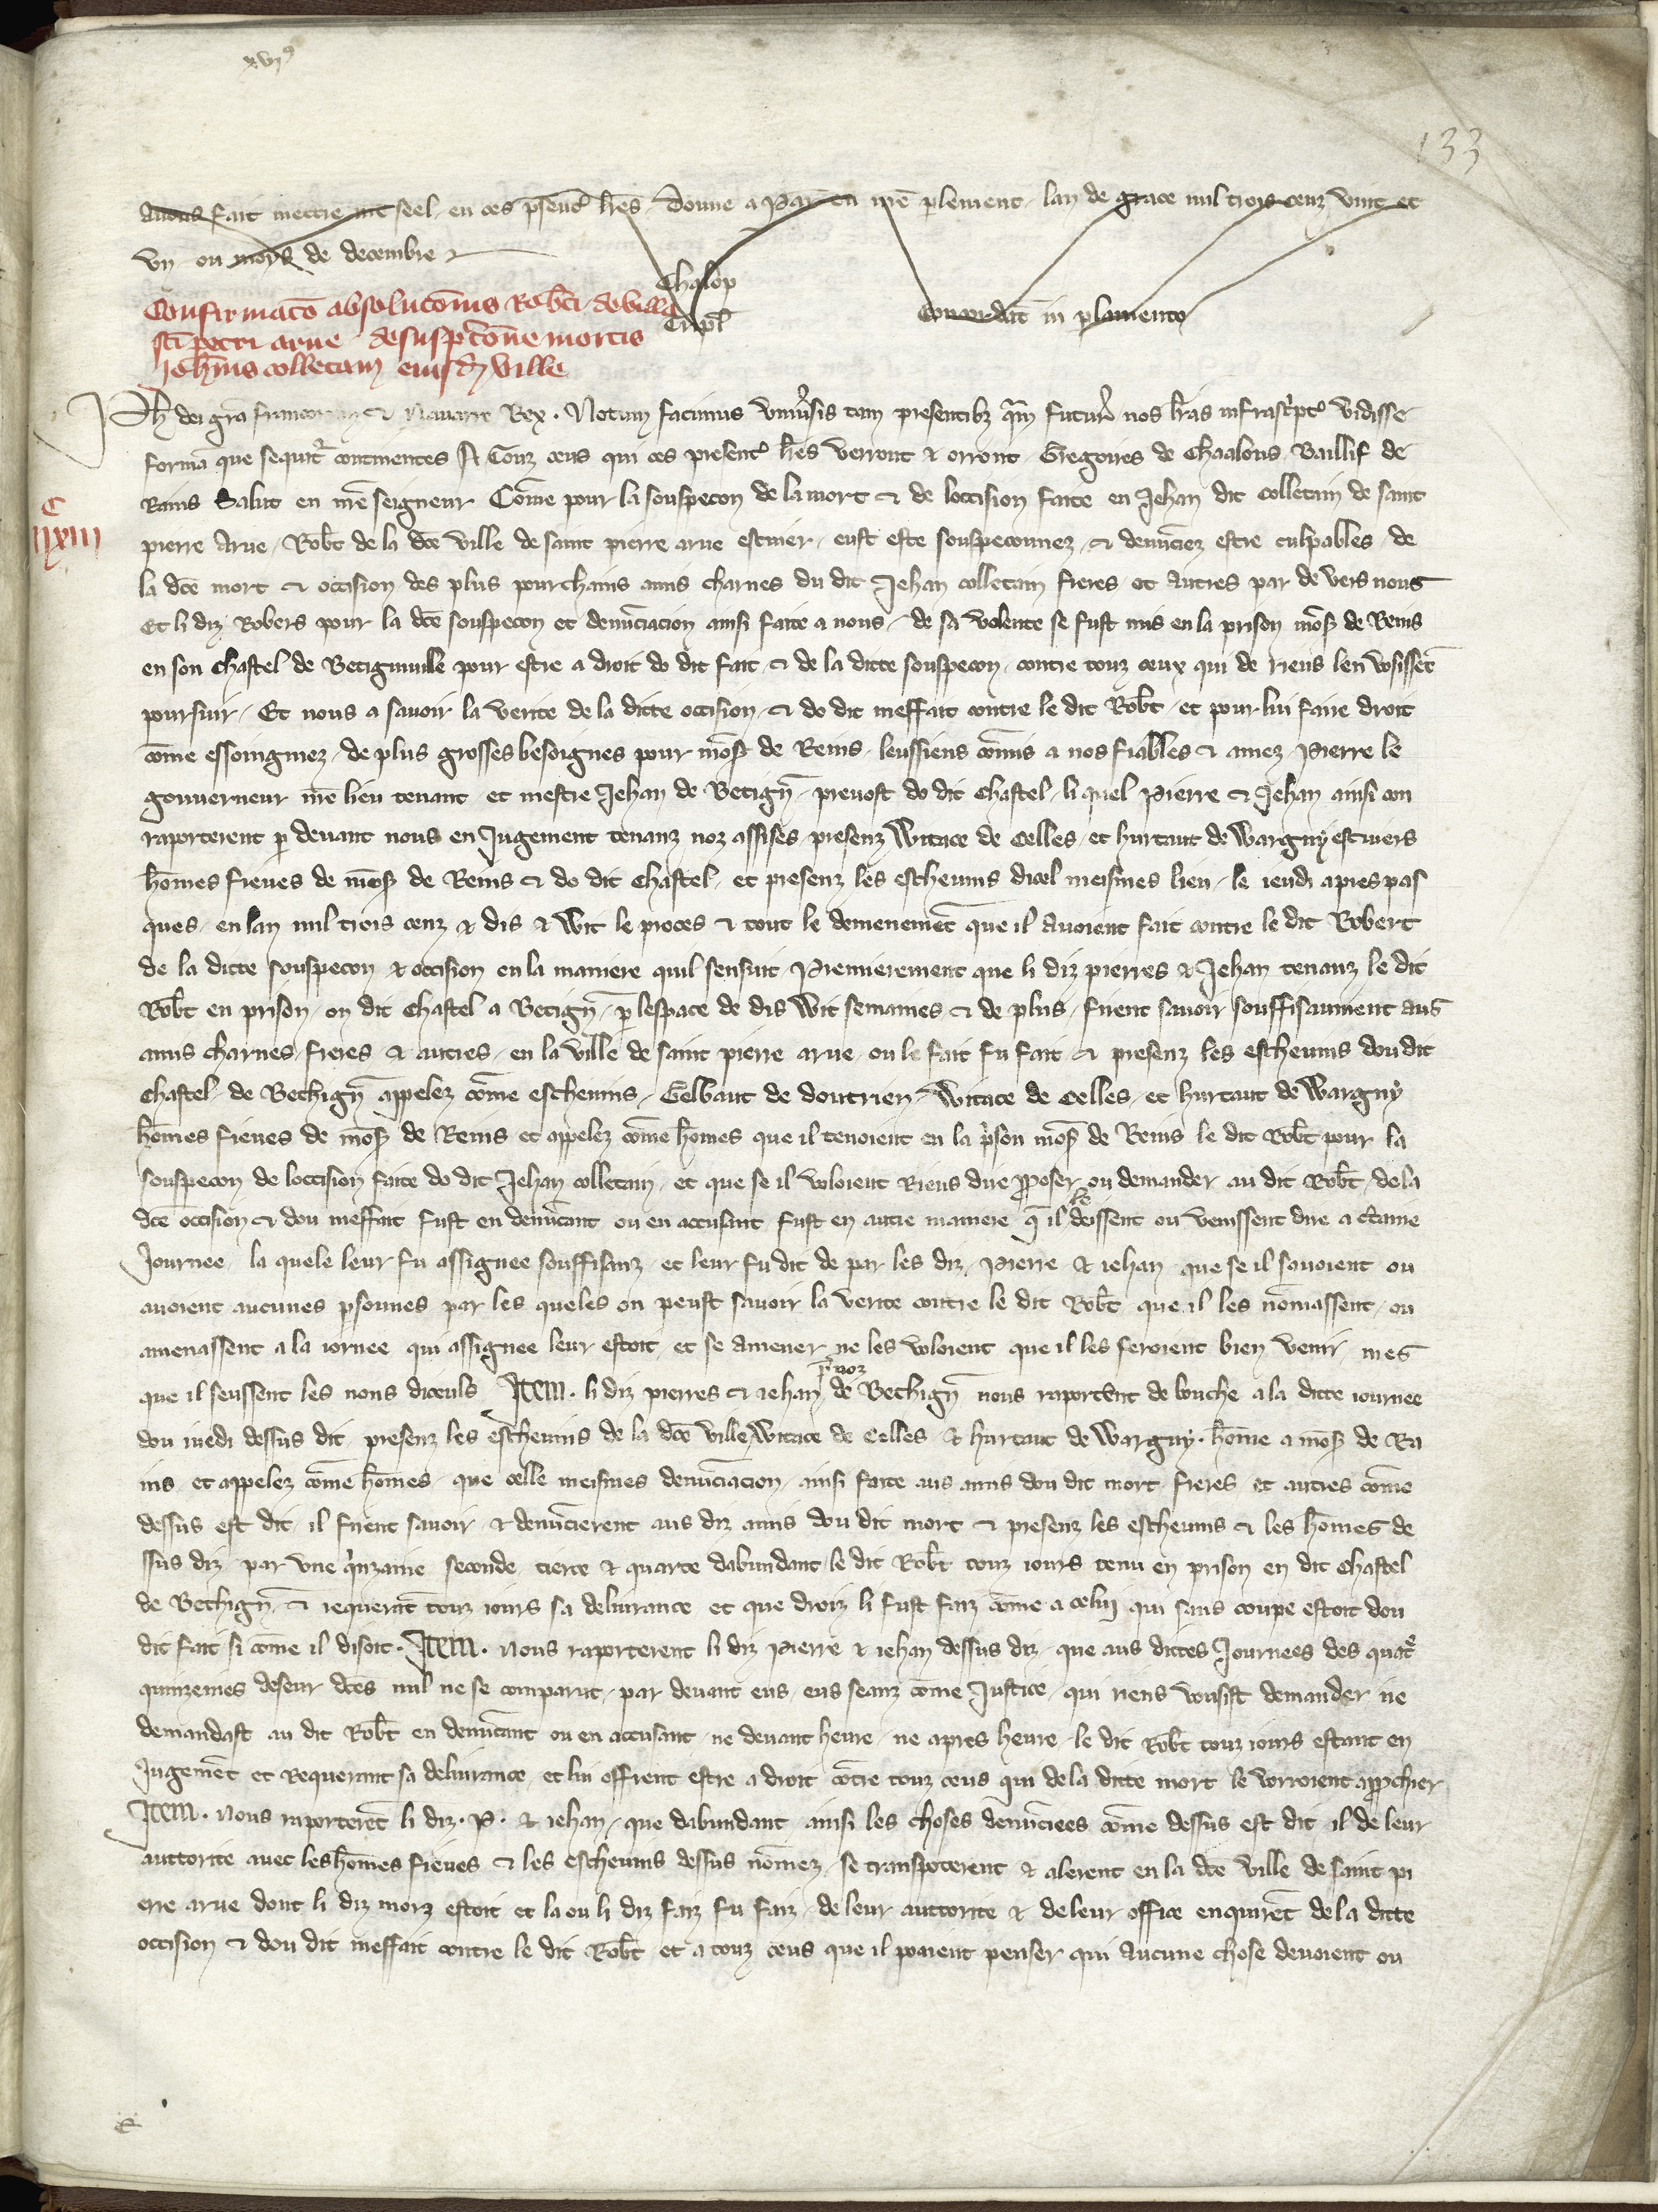 xvij⁹
133
avons fait mettre nr̄e seel en ces p̄sent᷒ lr̄es. Donne a Par̄ en nr̄e plement lan de grace mil trois cenz vint et
un ou moys de decembre
Chalop̄
Confirmac̄o absoluc̄onis Rob̄ti de villa
Tripl̄
Concordat᷒ in plamento
sc̄i petri arue de suspic̄one mortis
Joh̄nis colletam eiusd̄ ville
Ph̄ dei gr̄a francorum et Navarre Rex. Notum facimus universis tam presentibz q̄m futur᷒ nos lr̄as infrascript᷒ vidisse
formā que sequit᷒ continentes A Touz ceus qui ces present᷒ lr̄es verront et orront Gregoires de Chaalons Baillif de
Rains Salut en nr̄e seigneur Cōme pour la souspecon de la mort et de loccision faite en Jehan dit colletain de saint
C
iiijxxiij
pierre Arue Rob̄t de la dc̄e ville de saint pierre arue escuier eust este souspeconnez et denūciez estre culpables de
la dc̄e mort et occision des plus pourchains amis charnes du dit Jehan colletain freres et autres par de vers nous
Et li diz Robers pour la dc̄e souspecon et denūciacion ainsi faite a nous de sa volente se fust mis en la prison mōs᷒ de Reins
en son chastel de Betigniville pour estre a droit do dit fait et de la ditte souspecon contre touz ceux qui de riens len vosissēt
poursuir Et nous a savoir la verite de la ditte occision et do dit meffait contre le dit Rob̄t et pour lui faire droit
cōme essoingniez de plus grosses besoignes pour mōs᷒ de Reins leussiens cōmis a nos fiables et amez Pierre le
gouverneur nr̄e lieu tenant et mestre Jehan de Betign̄ prevost do dit chastel li quel Pierre et Jehan ainsi con
raporterent p devant nous en Jugement tenanz noz assises presenz Witace de Celles et hurtaut de Wargny escuiers
hōmes fieves de mōs᷒ de Reins et do dit chastel et presenz les eschevins dicel meismes lieu le ieudi apres pas
ques en lan mil trois cenz et dis et Wit le proces et tout le demenemēt que il avoient fait contre le dit Robert
de la ditte souspecon et occision en la maniere quil sensuit Premierement que li diz pierres et Jehan tenanz le dit
Rob̄t en prison ou dit chastel a Betign̄ p lespace de dis Wit semaines et de plus firent savoir souffisaument aus
amis charnes freres et autres en la ville de saint pierre arue ou le fait fu fait et presenz les eschevins dou dit
chastel de Bethign̄ appelez cōme eschevins Gelbaut de dontrien Witace de Celles et hurtaut de Wargny
hōmes fieves de mōs᷒ de Reins et appelez cōme hōmes que il tenoient en la p̄son mōs᷒ de Reins le dit Rob̄t pour la
souspecon de loccision faite do dit Jehan colletain et que se il voloient Riens dire pposer ou demander au dit Rob̄t de la
dc̄e occision et dou meffait fust en denūcant ou en accusant fust en autre maniere q̄ il le deissent ou venissent dire a c̄taine
Journee la quele leur fu assignee souffisanz et leur fu dit de par les diz Pierre et iehan que se il savoient ou
avoient aucunes psonnes par les queles on peust savoir la verite contre le dit Rob̄t que il les nōmassent ou
amenassent a la iornee qui assignee leur estoit et se amener ne les voloient que il les feroient bien venir mes
que il seussent les nons diceuls Item. li diz pierres et iehan p̄voz de Bethign̄ nous raportēnt de bouche a la ditte iournee
dou iuedi dessus dit presenz les eschevins de la dc̄e ville Witace de Celles et hurtaut de Wargny. hōme a mōs᷒ de Ra
ins et appelez cōme hōmes que celle meismes denūciacion ainsi faite aus amis dou dit mort freres et autres cōme
dessus est dit il firent savoir et denūcierent aus diz amis dou dit mort et presenz les eschevins et les hōmes de
ssus diz par une qinzaine seconde tierce et quarte dabundant le dit Rob̄t touz iours tenu en prison en dit chastel
de Bethign̄ et requerāt touz iours sa delivrance et que droiz li fust faiz cōme a celui qui sans coupe estoit dou
dit fait si cōme il disoit. Item. Nous raporterent li diz Pierre et iehan dessus diz que aus dittes Journees des quat᷒
quinzeines deseur dc̄es nul ne se comparut par devant eus eus seanz come Justice qui riens vousist demander ne
demandast au dit Rob̄t en denūcant ou en accusant ne devant heure ne apres heure le dit Rob̄t touz iours estant en
Jugemēt et Requerant sa delivrance et lui offrent estre a droit cōtre touz ceus qui de la ditte mort le vorroient approchier
Item. Nous raporterēt li diz. P. et iehan que dabundant ainsi les choses denūciees cōme dessus est dit il de leur
auttorite avec les hōmes fieves et les eschevins dessus nōmez se transporterent et alerent en la dc̄e ville de saint pi
erre arue dont li diz morz estoit et la ou li diz faiz fu faiz de leur auttorite et de leur office enquirēt de la ditte
occision et dou dit meffait contre le dit Rob̄t et a touz ceus que il pooient penser qui aucune chose devoient ou